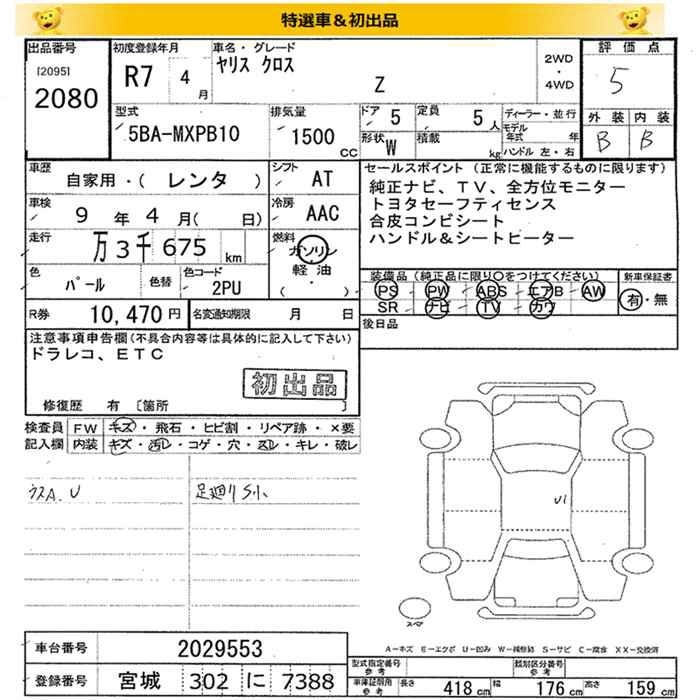 特選車＆初出品
出品番号
[2095]
2080
初度登録年月
R7 4月
車名・グレード
ヤリス クロス
Z
2WD
・
4WD
評価点
5
型式
5BA-MXPB10
排気量
1500 CC
ドア 5
定員 5人
形状 W
積載 kg
ディーラー・並行
モデル年式 年
ハンドル 左・右
外装 内装
B B
車歴
自家用・( レンタ )
シフト AT
車検
9年 4月( 日)
冷房 AAC
走行
万 3千 675 km
燃料
ガソリン
軽油
( ・ )
色
パール
色替
色コード
2PU
R券 10,470円
名変通知期限 月 日
セールスポイント (正常に機能するものに限ります)
純正ナビ、TV、全方位モニター
トヨタセーフティセンス
合皮コンビシート
ハンドル&シートヒーター
装備品(純正品に限り○をつけてください)
PS PW ABS エアB AW
SR ナビ TV カワ
新車保証書
有・無
後日品
注意事項申告欄(不具合内容等は具体的に記入して下さい)
ドラレコ、ETC
初出品
修復歴 有 〔箇所 〕
検査員 FW キズ・飛石・ヒビ割・リペア跡・×要
記入欄 内装 キズ・汚レ・コゲ・穴・スレ・キレ・破レ
ウスA、U
足廻りSル
U1
スマ
A－キズ E－エクボ U－凹み W－補修跡 S－サビ C－腐食 XX－交換済
車台番号 2029553
登録番号 宮城 302 に 7388
型式指定番号 参考
類別区分番号 参考
車庫証明用 参考
長さ 418 cm 幅 176 cm 高さ 159 cm